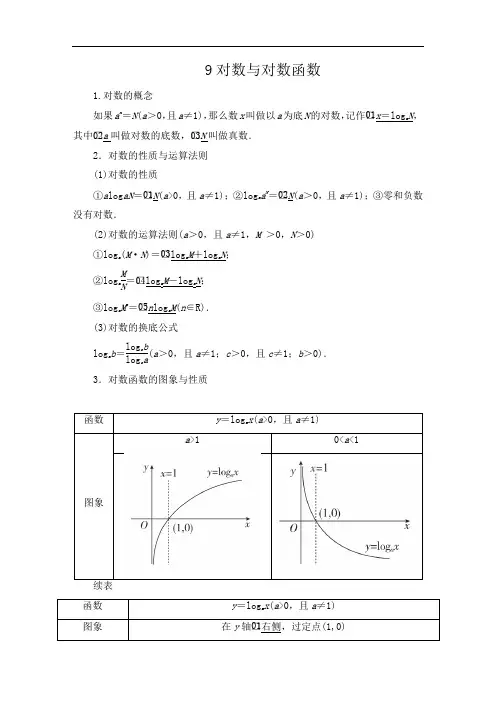 9对数与对数函数
1.对数的概念
如果aˣ=N(a>0,且a≠1),那么数x叫做以a为底N的对数,记作01x=logₐN,
其中02a叫做对数的底数,03N叫做真数.
2.对数的性质与运算法则
(1)对数的性质
①alogaN=01N(a>0,且a≠1);②logₐaᴺ=02N(a>0,且a≠1);③零和负数
没有对数.
(2)对数的运算法则(a>0,且a≠1,M >0,N>0)
①logₐ(M·N)=03logₐM+logₐN;
②logₐM/N=04logₐM-logₐN;
③logₐMⁿ=05nlogₐM(n∈R).
(3)对数的换底公式
logₐb=log꜀b/log꜀a(a>0,且a≠1;c>0,且c≠1;b>0).
3.对数函数的图象与性质
函数 y=logₐx(a>0,且a≠1)
a>1 0<a<1
图象
y x=1 y=logₐx O (1,0) x
y x=1 (1,0) O x y=logₐx
续表
函数 y=logₐx(a>0,且a≠1)
图象 在y轴01右侧,过定点(1,0)